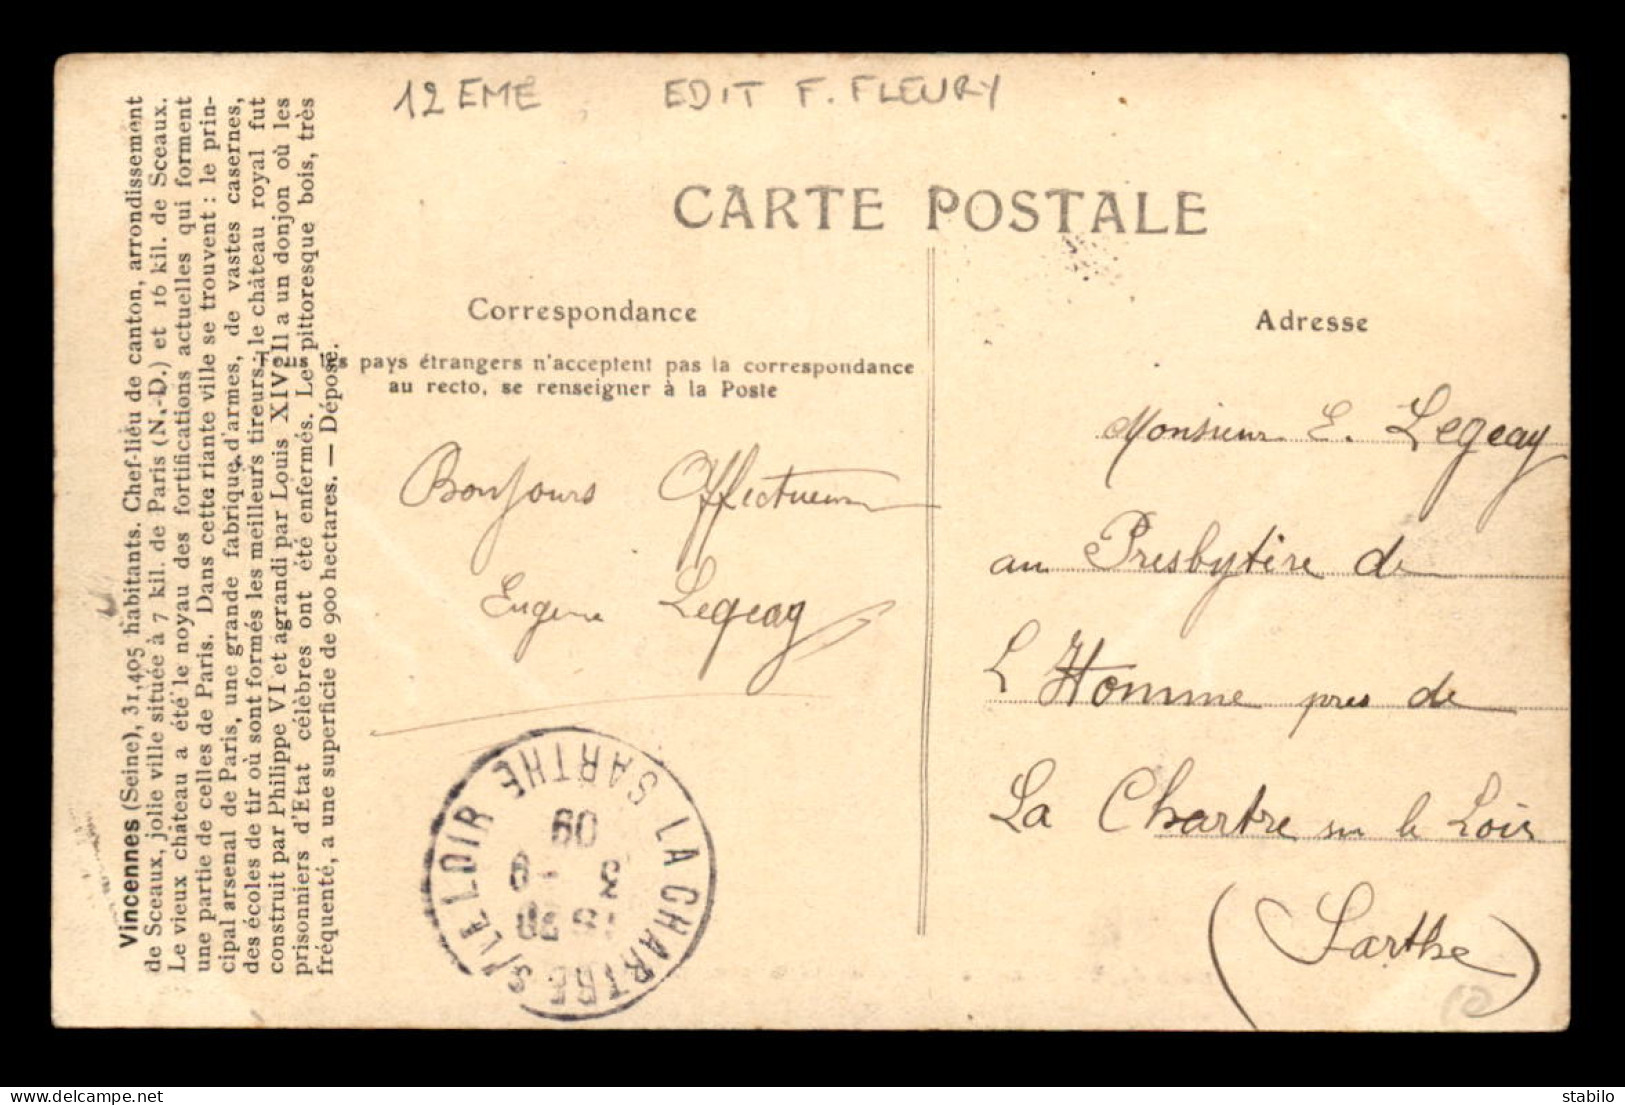 12EME EDIT F. FLEURY
CARTE POSTALE
Correspondance
Tous les pays étrangers n'acceptent pas la correspondance
au recto, se renseigner à la Poste
Bonjours Affectueux
Eugène Legeay
Adresse
Monsieur E. Legeay
au Presbytère de
L'Homme près de
La Chartre sur le Loir
(Sarthe)
Vincennes (Seine), 31,405 habitants. Chef-lieu de canton, arrondissement
de Sceaux, jolie ville située à 7 kil. de Paris (N.-D.) et 16 kil. de Sceaux.
Le vieux château a été le noyau des fortifications actuelles qui forment
une partie de celles de Paris. Dans cette riante ville se trouvent : le prin-
cipal arsenal de Paris, une grande fabrique d'armes, de vastes casernes,
des écoles de tir où sont formés les meilleurs tireurs; le château royal fut
construit par Philippe VI et agrandi par Louis XIV. Il a un donjon où les
prisonniers d'Etat célèbres ont été enfermés. Le pittoresque bois, très
fréquenté, a une superficie de 900 hectares. — Déposé.
LA CHARTRE S/ LE LOIR SARTHE
09
delcampe.net
stabilo